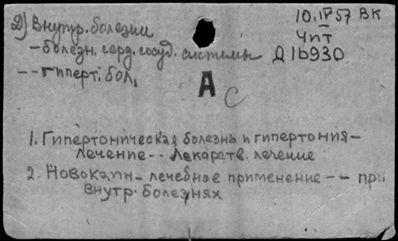 2) Внутр. болезни
10.IV 57 ВК
– болезн. серд. сосуд. системы
Чит
Д 16930
– – гиперт. бол.
А
С
1. Гипертоническая болезнь и гипертония –
лечение – – лекарств. лечение
2. Новокаин – лечебное применение – – при
внутр. болезнях